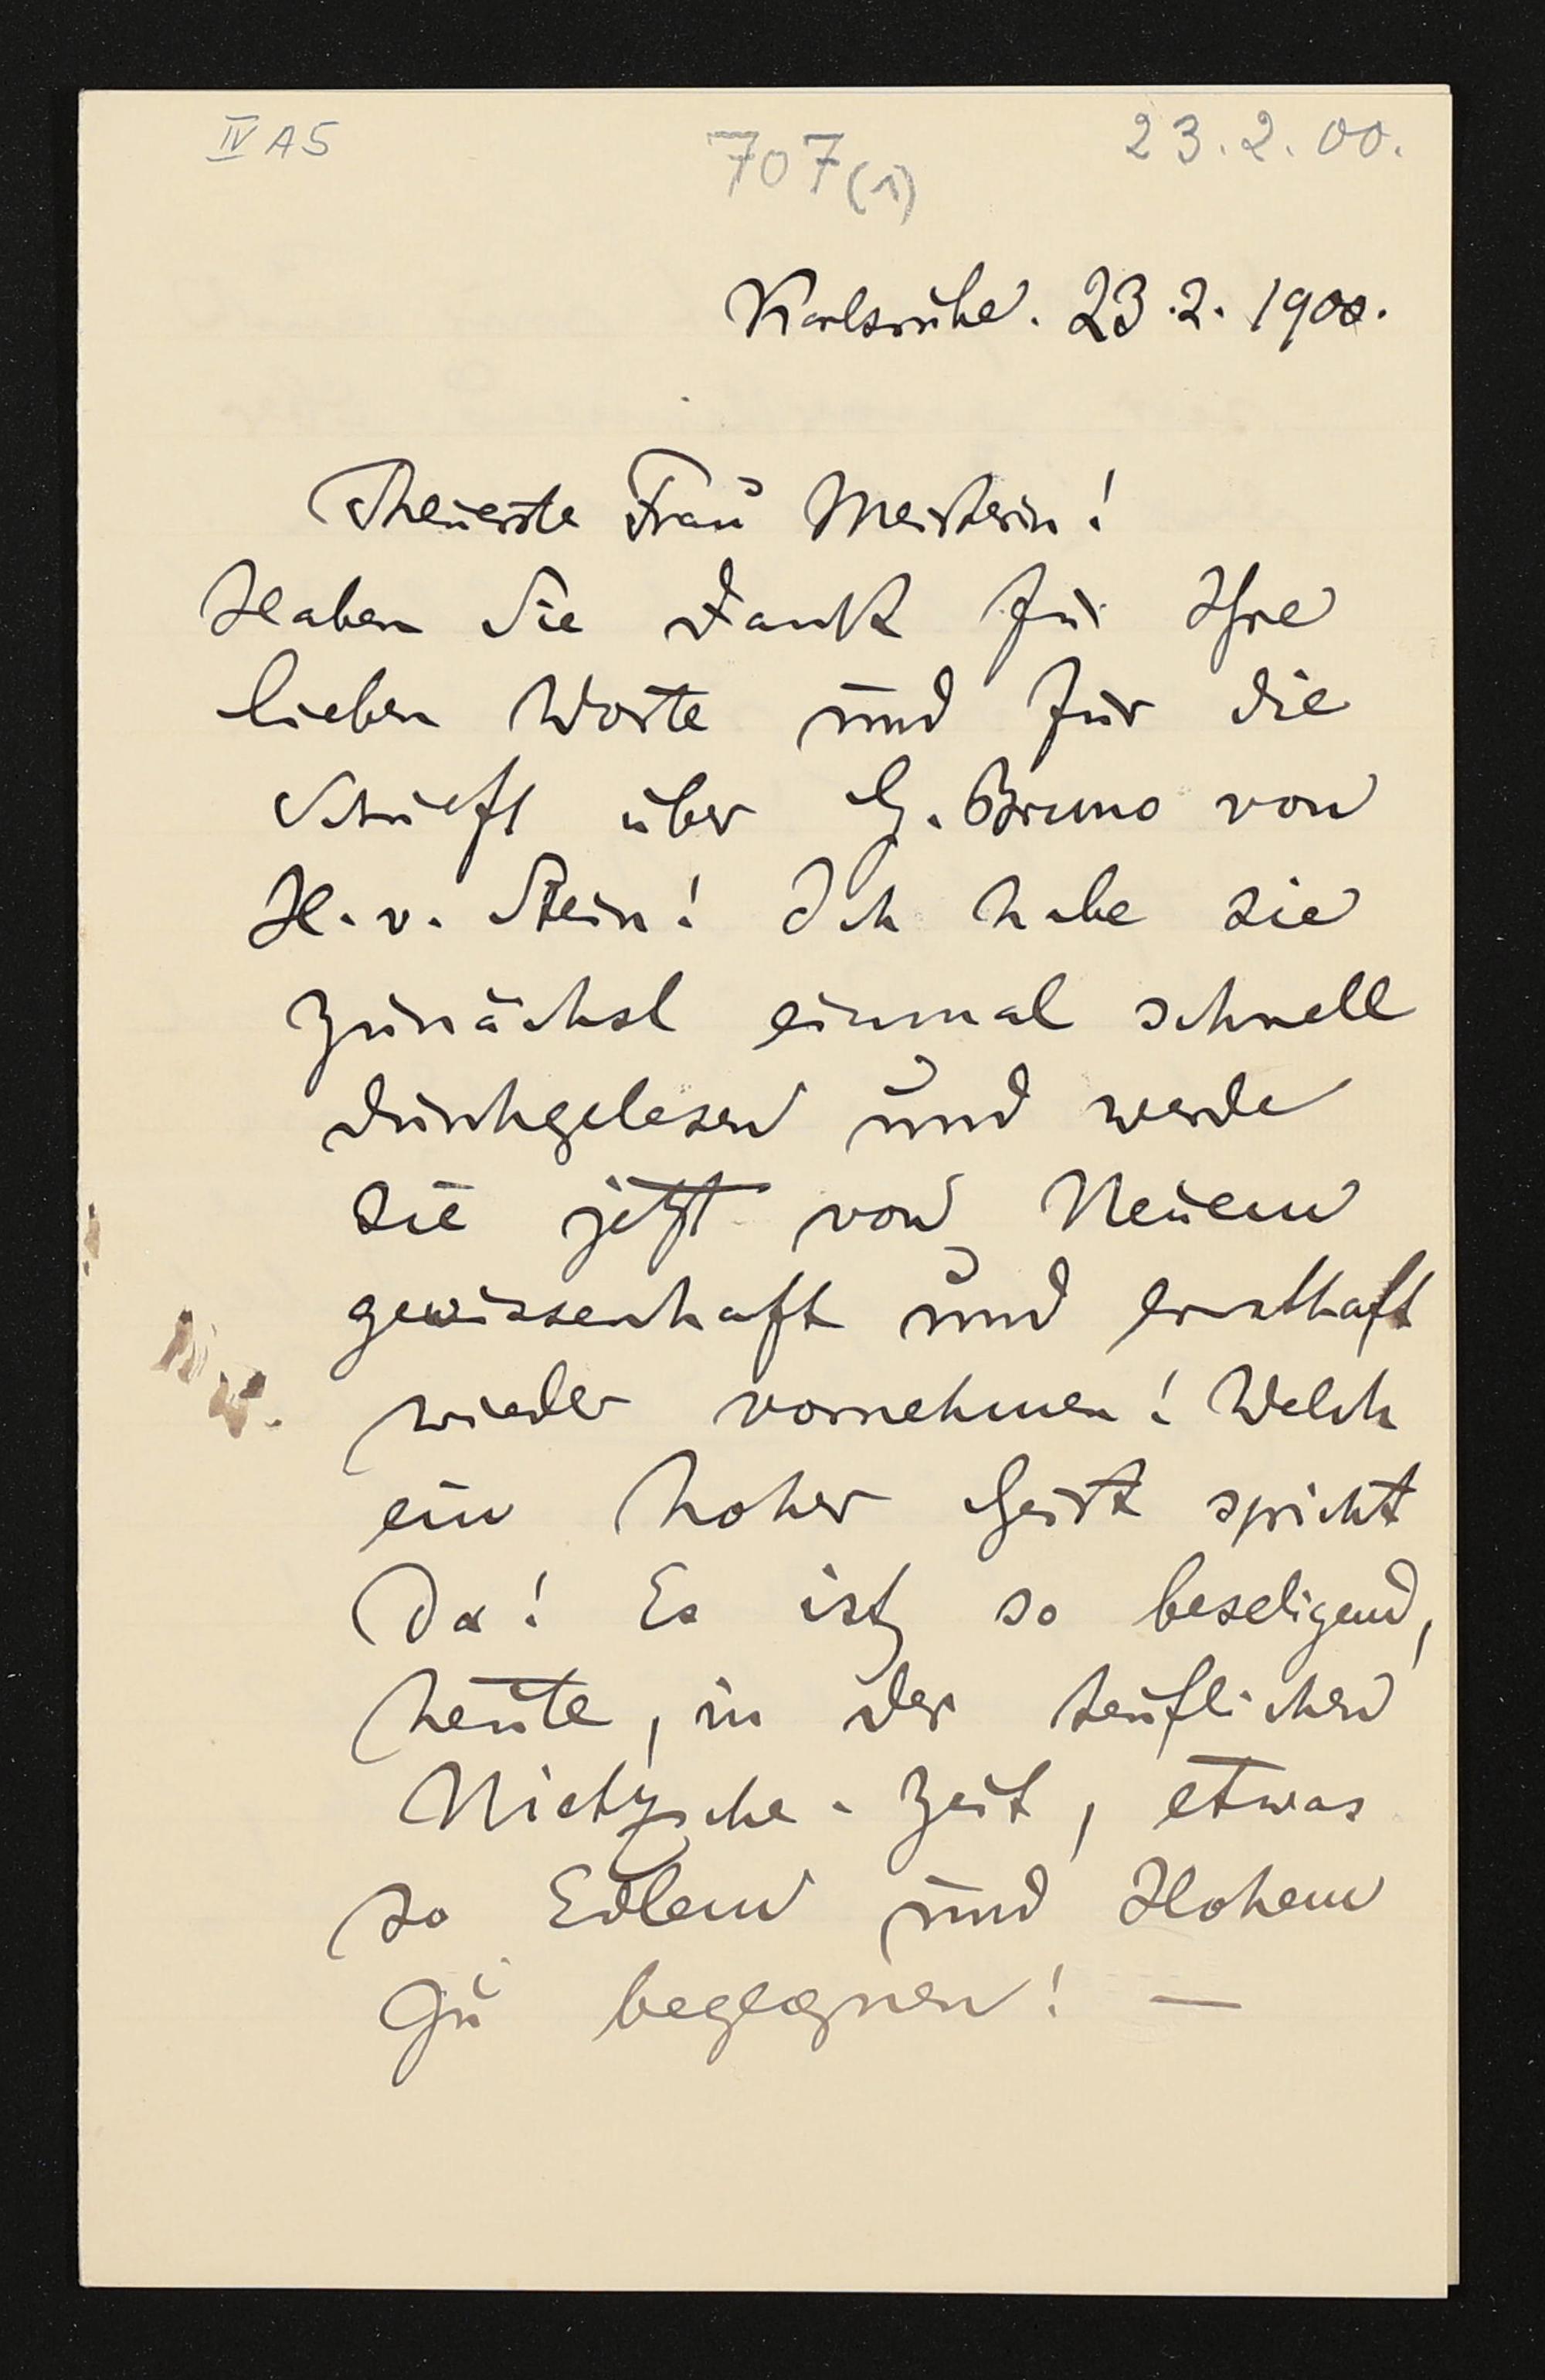 IV A5
707(1)
23.2.00.
Karlsruhe. 23.2.1900.
Theuerste Frau Meisterin!
Haben Sie Dank für Ihre
lieben Worte und für die
Schrift über G. Bruno von
H. v. Stein! Ich habe sie
zunächst einmal schnell
durchgelesen und werde
sie jetzt von Neuem
gewissenhaft und ernsthaft
wieder vornehmen! Welch
ein hoher Geist spricht
da! Es ist so beseligend,
heute, in der teuflichen
Nietzsche-Zeit, etwas
so Edlem und Hohem
zu begegnen! —